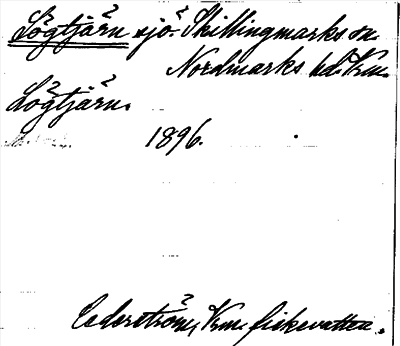 Lögtjärn sjö. Skillingmarks sn.
Nordmarks hd. Vrm.
Lögtjärn.
1896.
Cederström, Vrm. fiskevatten.